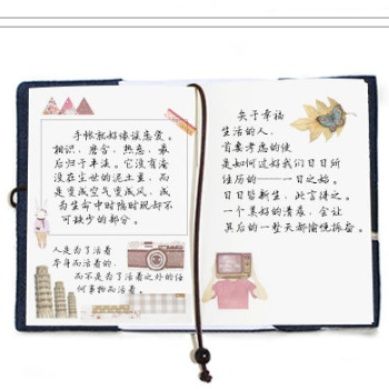 手帐就好像谈恋爱。
相识、磨合、热恋、最
后归于平淡。它没有淹
没在尘世的泥土里，而
是变成空气变成风，成
为生命中时隔时现却不
可缺少的部分。
人是为了活着
本身而活着的，
而不是为了活着之外的任
何事物而活着。
关于幸福
生活的人，
首要考虑的使
是如何过好我们日日所
住历的——一日之始。
日日皆新生，此言得之。
一个美好的清晨，会让
其后的一整天都愉悦振奋。